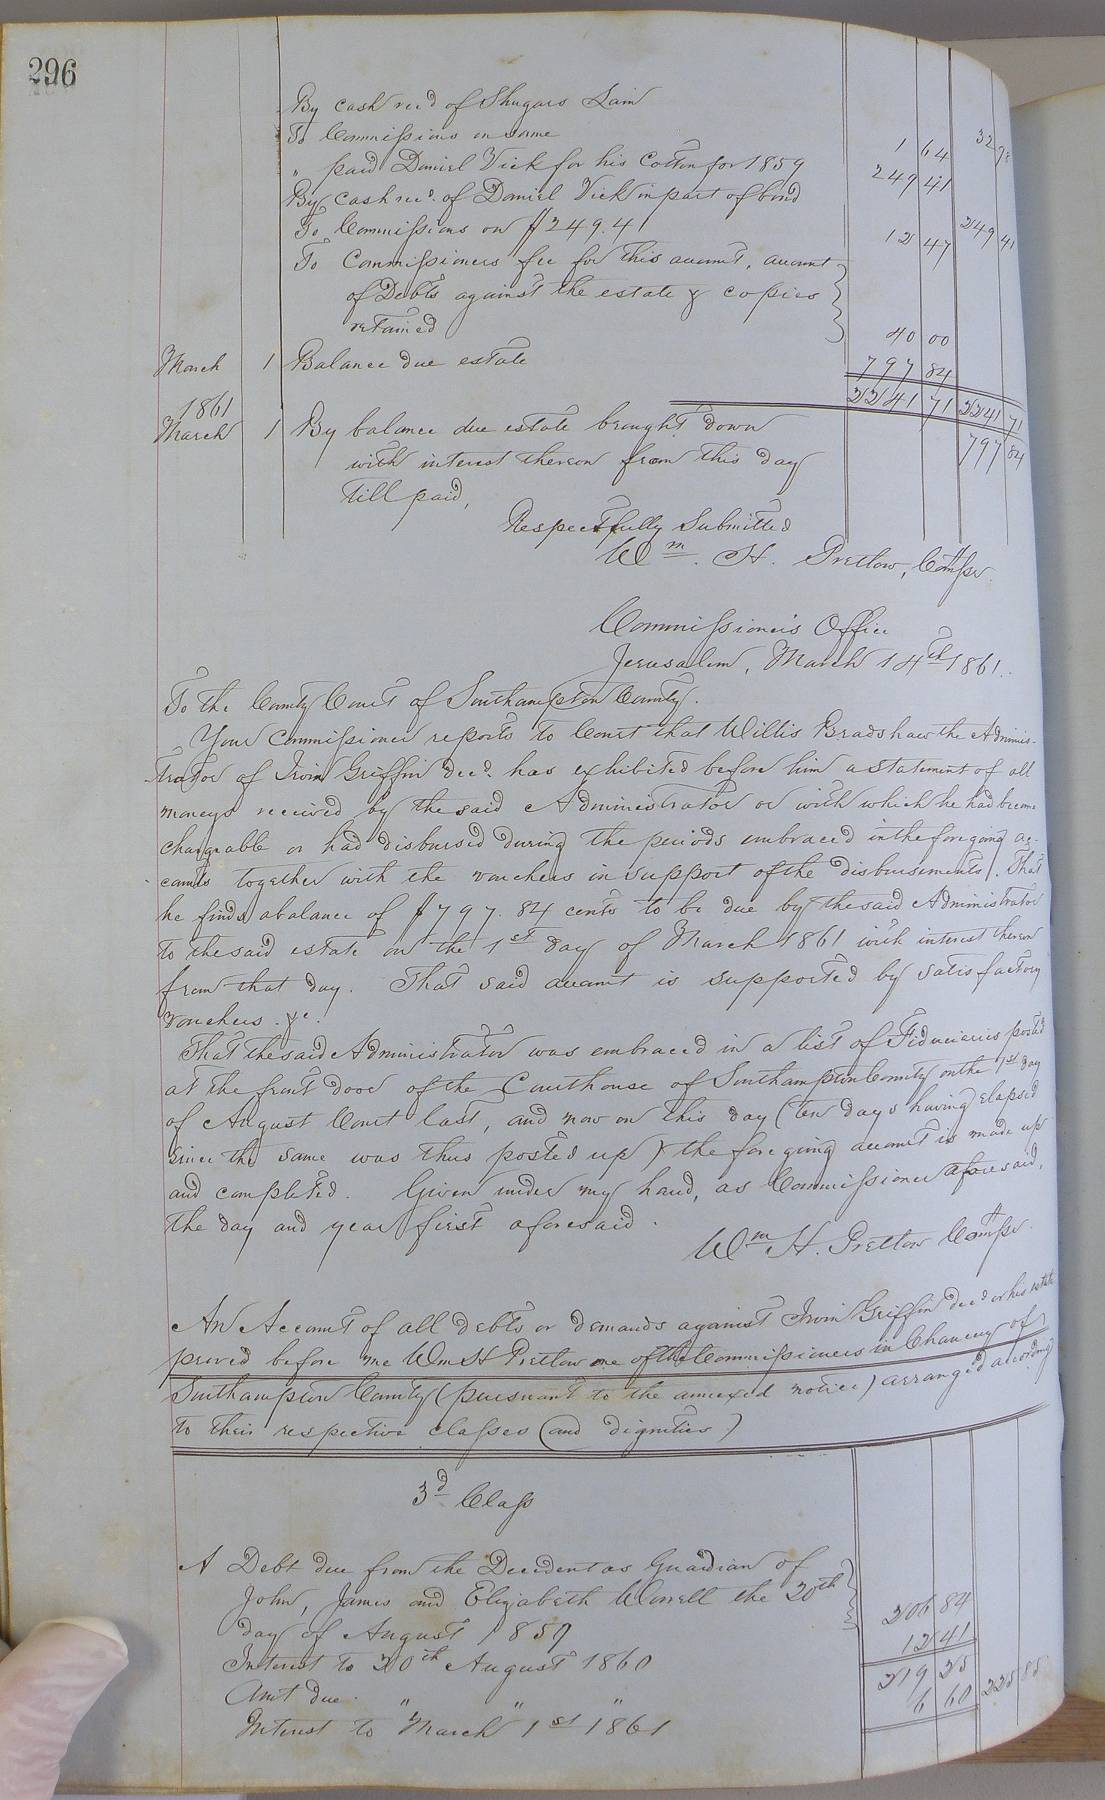 296
By cash rec'd of Shugars Lain 32 78
To Commissions on same 1 64
" paid Daniel Vick for his Cotton for 1859 249 41
By cash rec'd. of Daniel Vick in part of bond 249 41
To Commissions on $249.41 12 47
To Commissioners fee for this account, account
of Debts against the estate & copies
retained 40 00
March 1 Balance due estate 797 84
2241 71 2241 71
1861
March 1 By balance due estate brought down 797 84
with interest thereon from this day
till paid,
Respectfully Submitted
Wm. H. Pretlow, Comssr.
Commissioner's Office
Jerusalem, March 14th 1861.
To the County Court of Southampton County.
Your Commissioner reports to Court that Willis Bradshaw the Adminis-
trator of Irvin Griffin decd. has exhibited before him a statement of all
moneys received by the said Administrator or with which he had become
chargeable or had disbursed during the periods embraced in the foregoing ac-
counts together with the vouchers in support of the disbursements. That
he finds a balance of $797.84 cents to be due by the said Administrator
to the said estate on the 1st day of March 1861 with interest thereon
from that day. That said account is supported by satisfactory
vouchers. &c.
That the said Administrator was embraced in a list of Fiduciaries posted
at the front door of the Courthouse of Southampton County on the 1st day
of August Court last, and now on this day (ten days having elapsed
since the same was thus posted up) the foregoing account is made up
and completed. Given under my hand, as Commissioner aforesaid,
the day and year first aforesaid.
Wm H. Pretlow Comssr.
An Account of all debts or demands against Irvin Griffin decd or his estate
proved before me Wm H Pretlow one of the Commissioners in Chancery of
Southampton County (pursuant to the annexed notice) arranged according
to their respective classes (and dignities)
3d Class
A Debt due from the Decedent as Guardian of
John, James and Elizabeth Worrell the 20th
day of August 1859 206 84
Interest to 20th August 1860 12 41
Amt due " " " 219 25
Interest to March 1st 1861 6 60 225 85